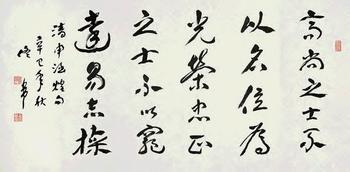 高尚之士不
以名位為
光榮忠正
之士不以窮
達易志操
清申涵煜句
辛巳年秋